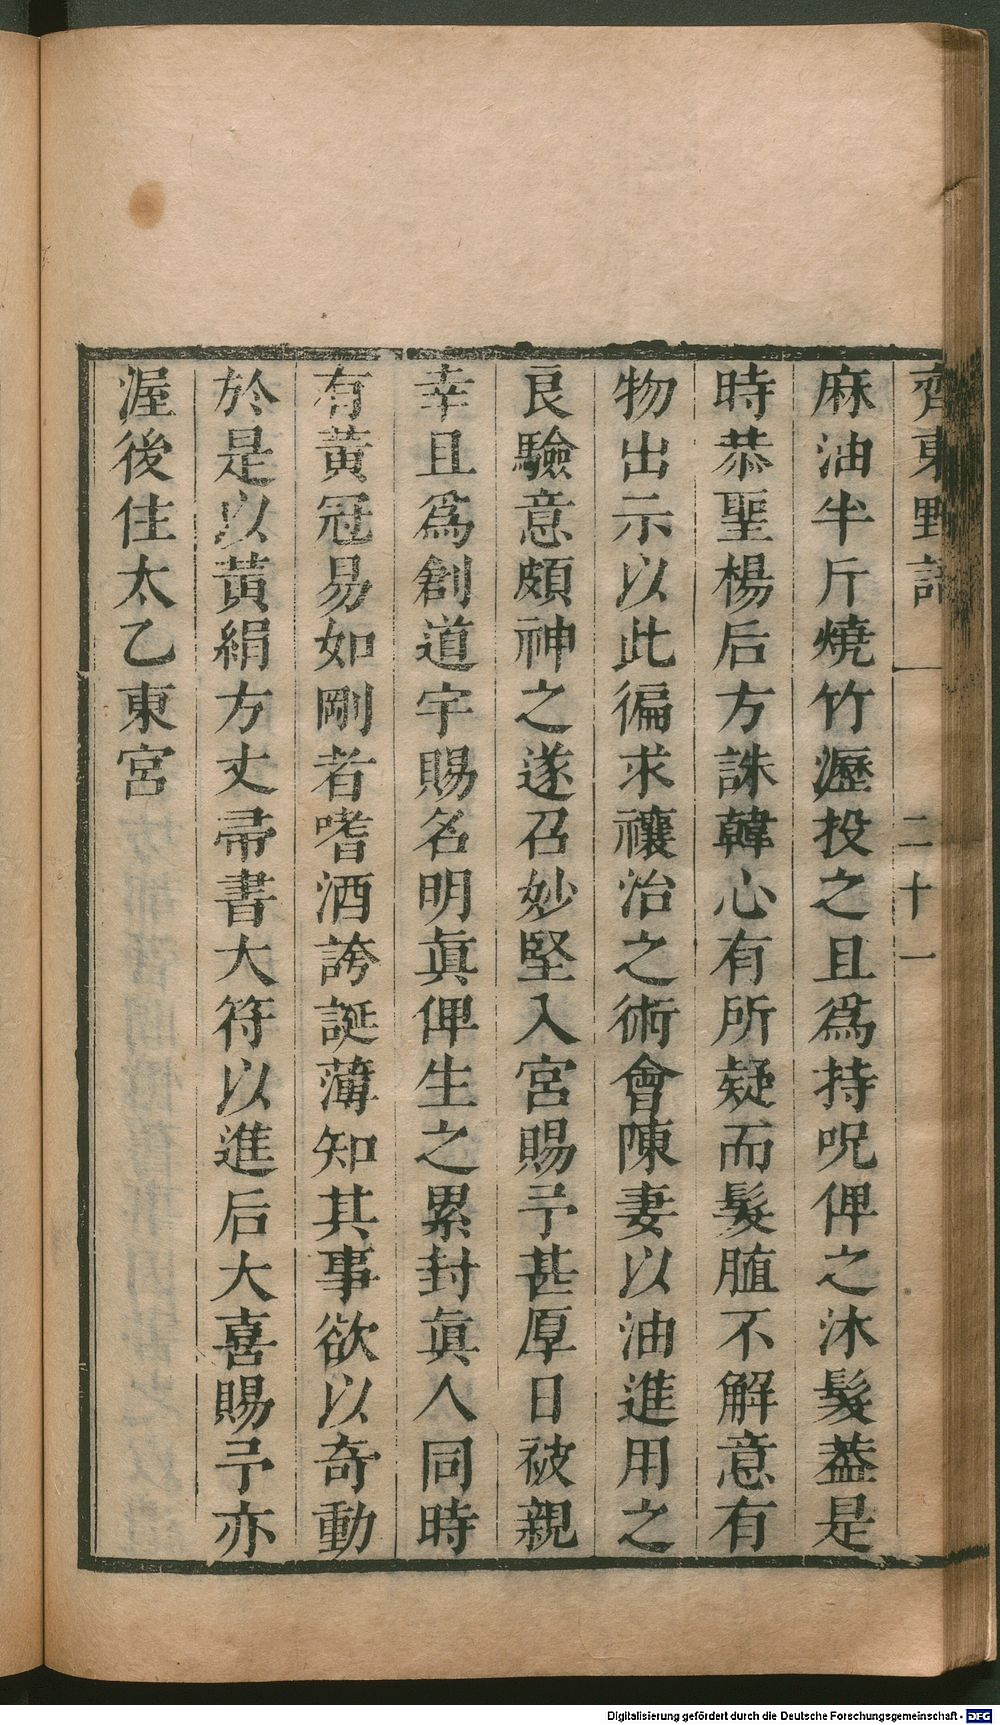 齊東野語 一 二十一
麻油半斤燒竹瀝投之且爲持呪俾之沐髮葢是
時恭聖楊后方誅韓心有所疑而髮䐈不解意有
物出示以此徧求禳治之術會陳妻以油進用之
良驗意頗神之遂召妙堅入宮賜予甚厚日被親
幸且爲創道宇賜名明眞俾生之累封眞人同時
有黃冠易如剛者嗜酒誇誕薄知其事欲以奇動
於是以黃絹方丈帚書大符以進后大喜賜予亦
渥後住太乙東宮
Digitalisierung gefördert durch die Deutsche Forschungsgemeinschaft - DFG